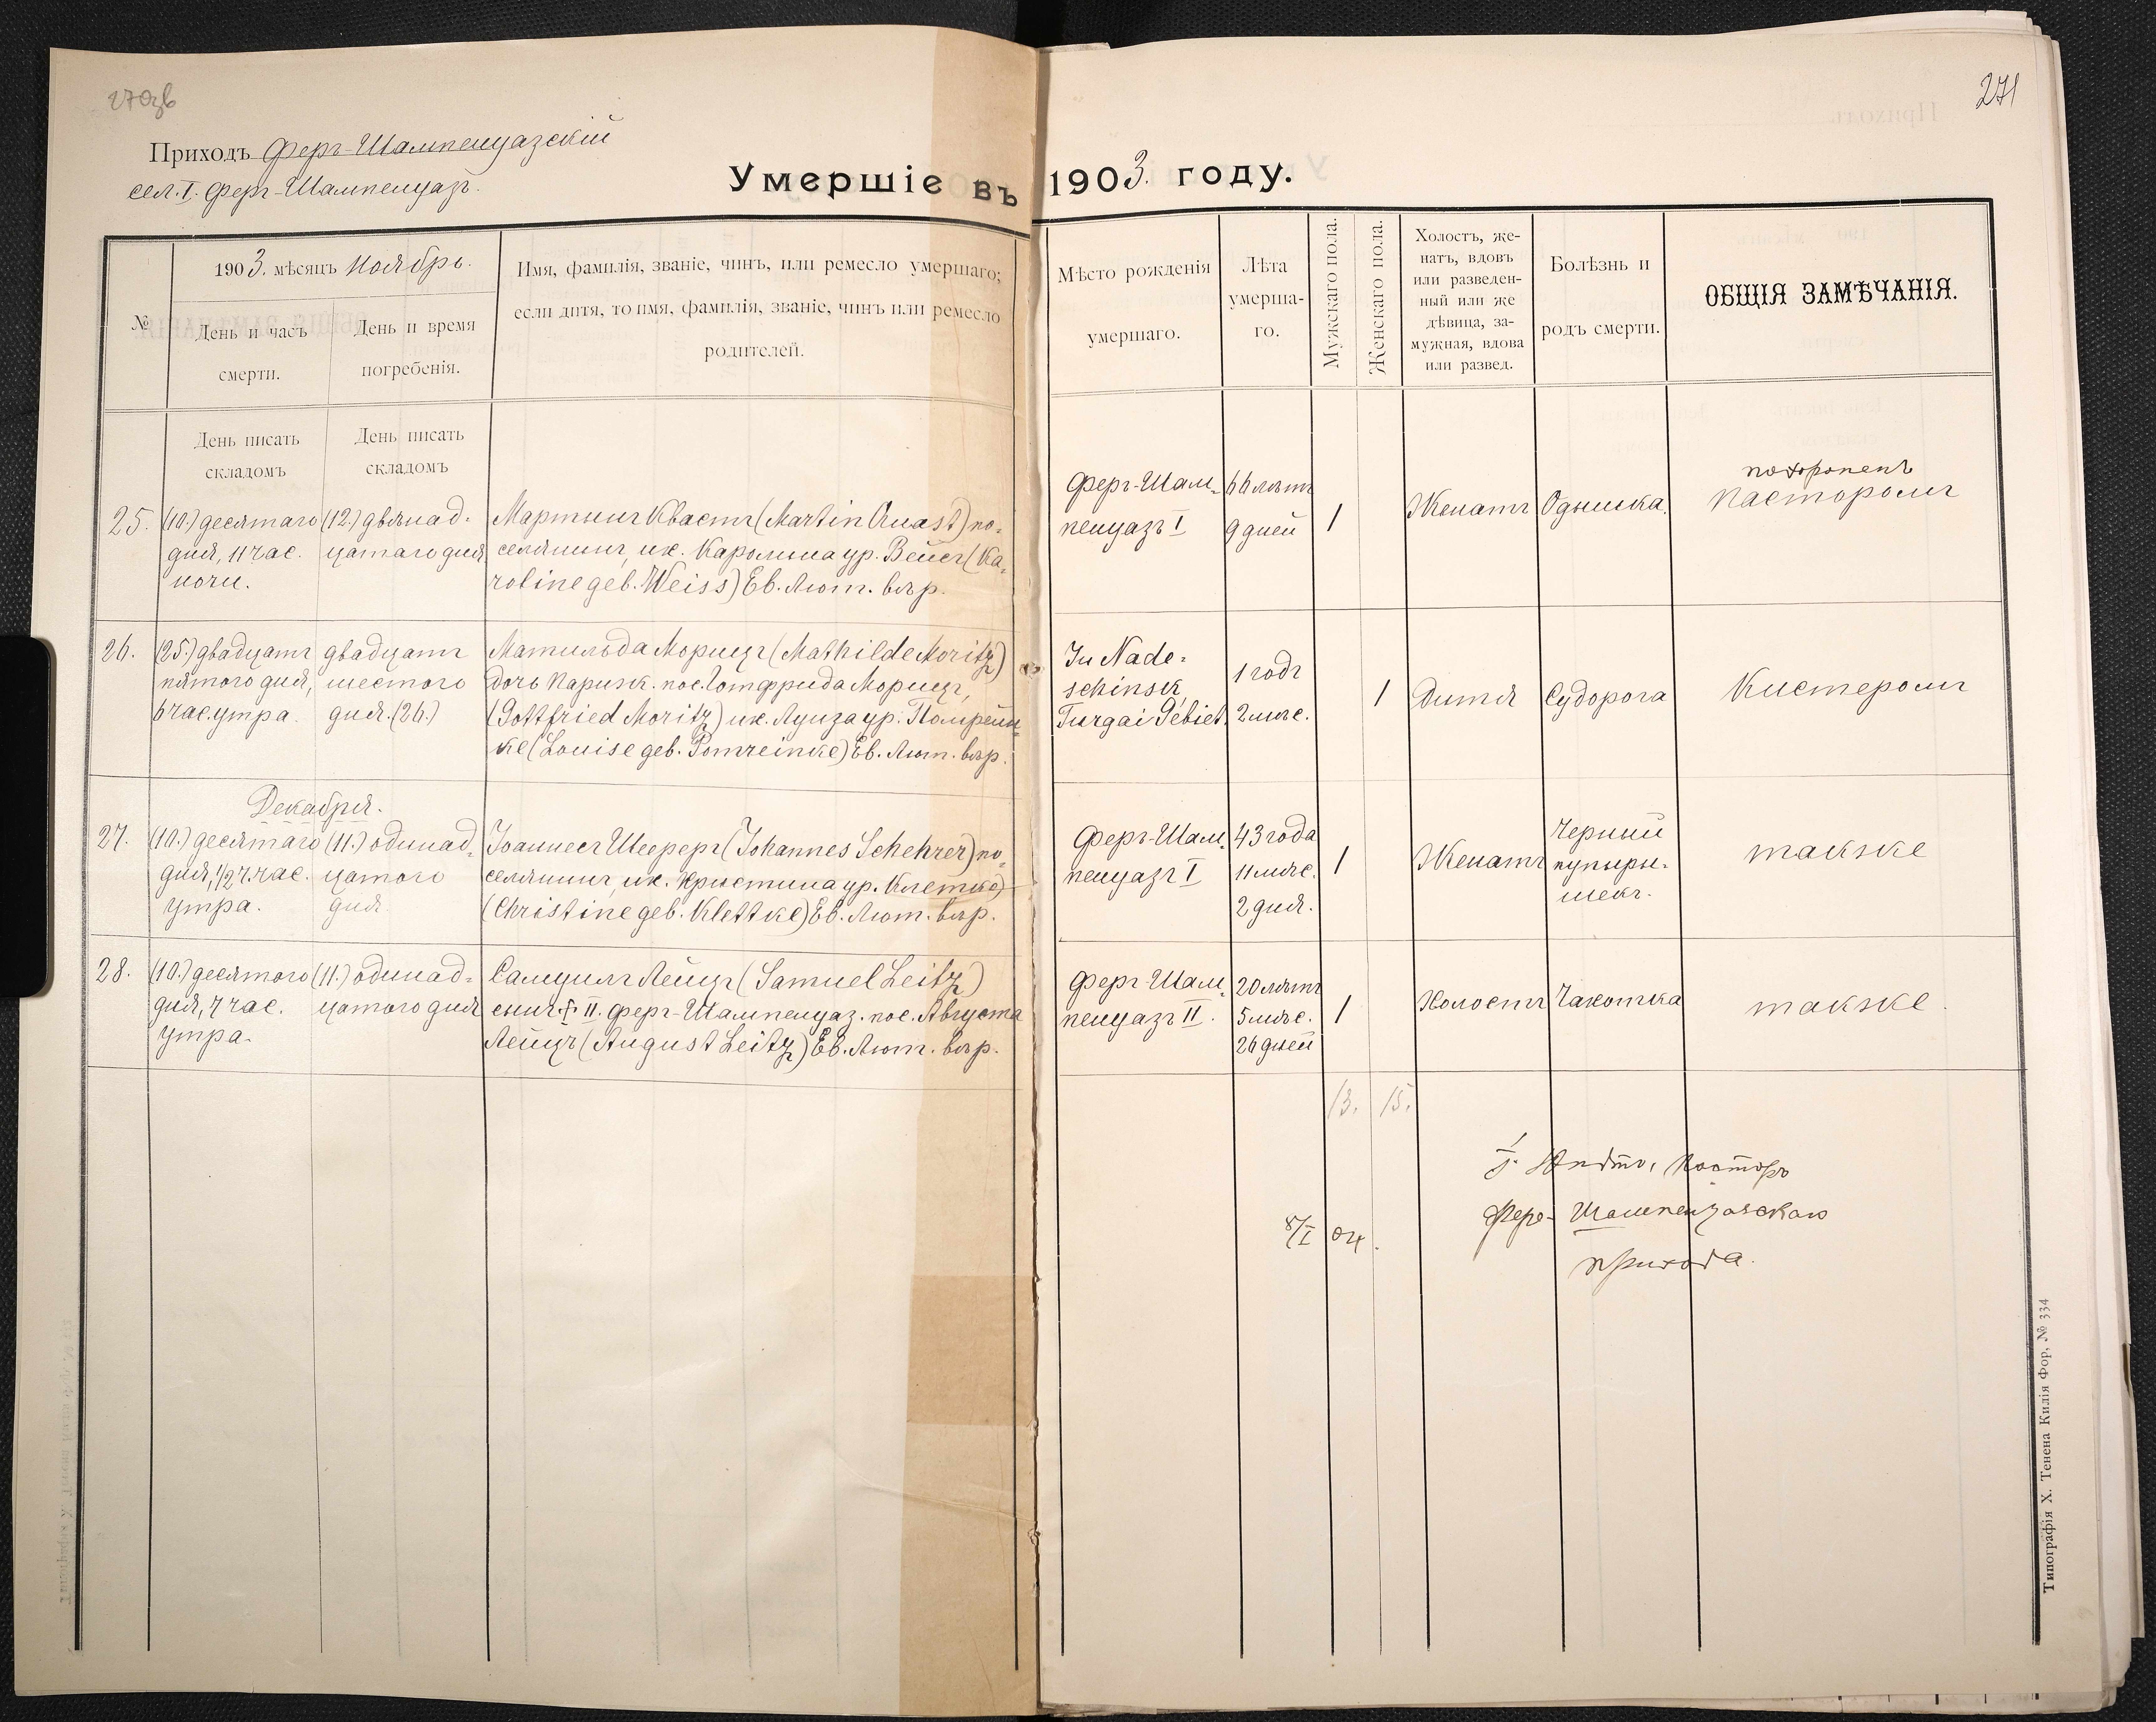 270зв
271
Приходъ Феръ-Шампенуазскій
сел. I. Феръ-Шампенуазъ.
Умершіе въ 1903. году.
№
1903. мѣсяцъ Ноябрь.
День и часъ
смерти.
День и время
погребенія.
Имя, фамилія, званіе, чинъ, или ремесло умершаго;
если дитя, то имя, фамилія, званіе, чинъ или ремесло
родителей.
Мѣсто рожденія
умершаго.
Лѣта
умерша-
го.
Мужскаго пола.
Женскаго пола.
Холостъ, же-
натъ, вдовъ
или разведен-
ный или же
дѣвица, за-
мужная, вдова
или развед.
Болѣзнь и
родъ смерти.
ОБЩІЯ ЗАМѢЧАНІЯ.
День писать
складомъ
День писать
складомъ
25.
(10.) десятаго
дня, 11 час.
ночи.
(12.) двѣнад-
цатаго дня
Мартинъ Квастъ (Martin Quast) по-
селянинъ, ж. Каролина ур. Вейсъ (Ka-
roline geb. Weiss) Ев. Лют. вѣр.
Феръ-Шам-
пенуазъ I
66 лѣтъ
9 дней
1
Женатъ
Одышка.
похороненъ
Пасторомъ
26.
(25.) двадцать
пятого дня,
6 час. утра.
двадцать
шестого
дня. (26.)
Матильда Морицъ (Mathilde Moritz)
дочь Париж. пос. Готфрида Морицъ,
(Gottfried Moritz) и ж. Луиза ур. Помрейн-
ке (Louise geb. Pomreinke) Ев. Лют. вѣр.
In Nade-
schinsk,
Turgai Gebiet.
1 годъ
2 мѣс.
1
Дитя
Судорога
Кистеромъ
Декабря.
27.
(10.) десятаго
дня, 1/2 7. час.
утра.
(11.) одинад-
цатого
дня.
Іоаннесъ Шерeръ (Johannes Schehrer) по-
селянинъ, ж. Христина ур. Клетке)
(Christine geb. Klettke) Ев. Лют. вѣр.
Феръ-Шам-
пенуазъ I
43 года
11 мѣс.
2 дня.
1
Женатъ
Черный
пупыры-
шекъ.
также
28.
(10.) десятого
дня, 7 час.
утра.
(11.) одинад-
цатого дня
Самуилъ Лейцъ (Samuel Leitz)
сынъ II. Феръ-Шампенуаз. пос. Августа
Лейцъ (August Leitz) Ев. Лют. вѣр.
Феръ-Шам-
пенуазъ II.
20 лѣтъ
5 мѣс.
26 дней
1
Холостъ
Чахотка
также.
13. 15.
Пасторъ
8/I 04.
Феръ-Шампенуазскаго
прихода.
Типографія Х. Тенена Килія Фор, № 334